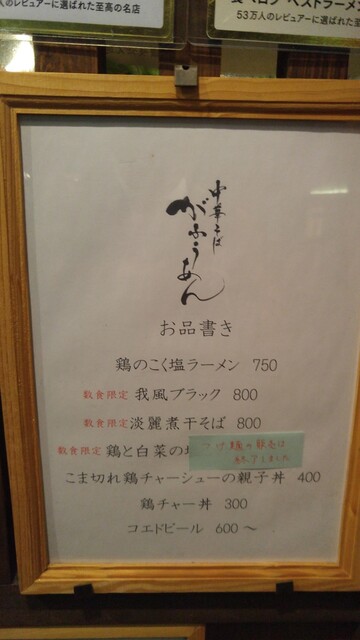 人のレビュアーに選ばれた至高の名店
食べログ ベストラーメン
53万人のレビュアーに選ばれた至
中華そば
がふうあん
お品書き
鶏のこく塩ラーメン 750
数食限定 我風ブラック 800
数食限定 淡麗煮干そば 800
数食限定 鶏と白菜の
つけ麺の販売は
終了しました
こま切れ鶏チャーシューの親子丼 400
鶏チャー丼 300
コエドビール 600～